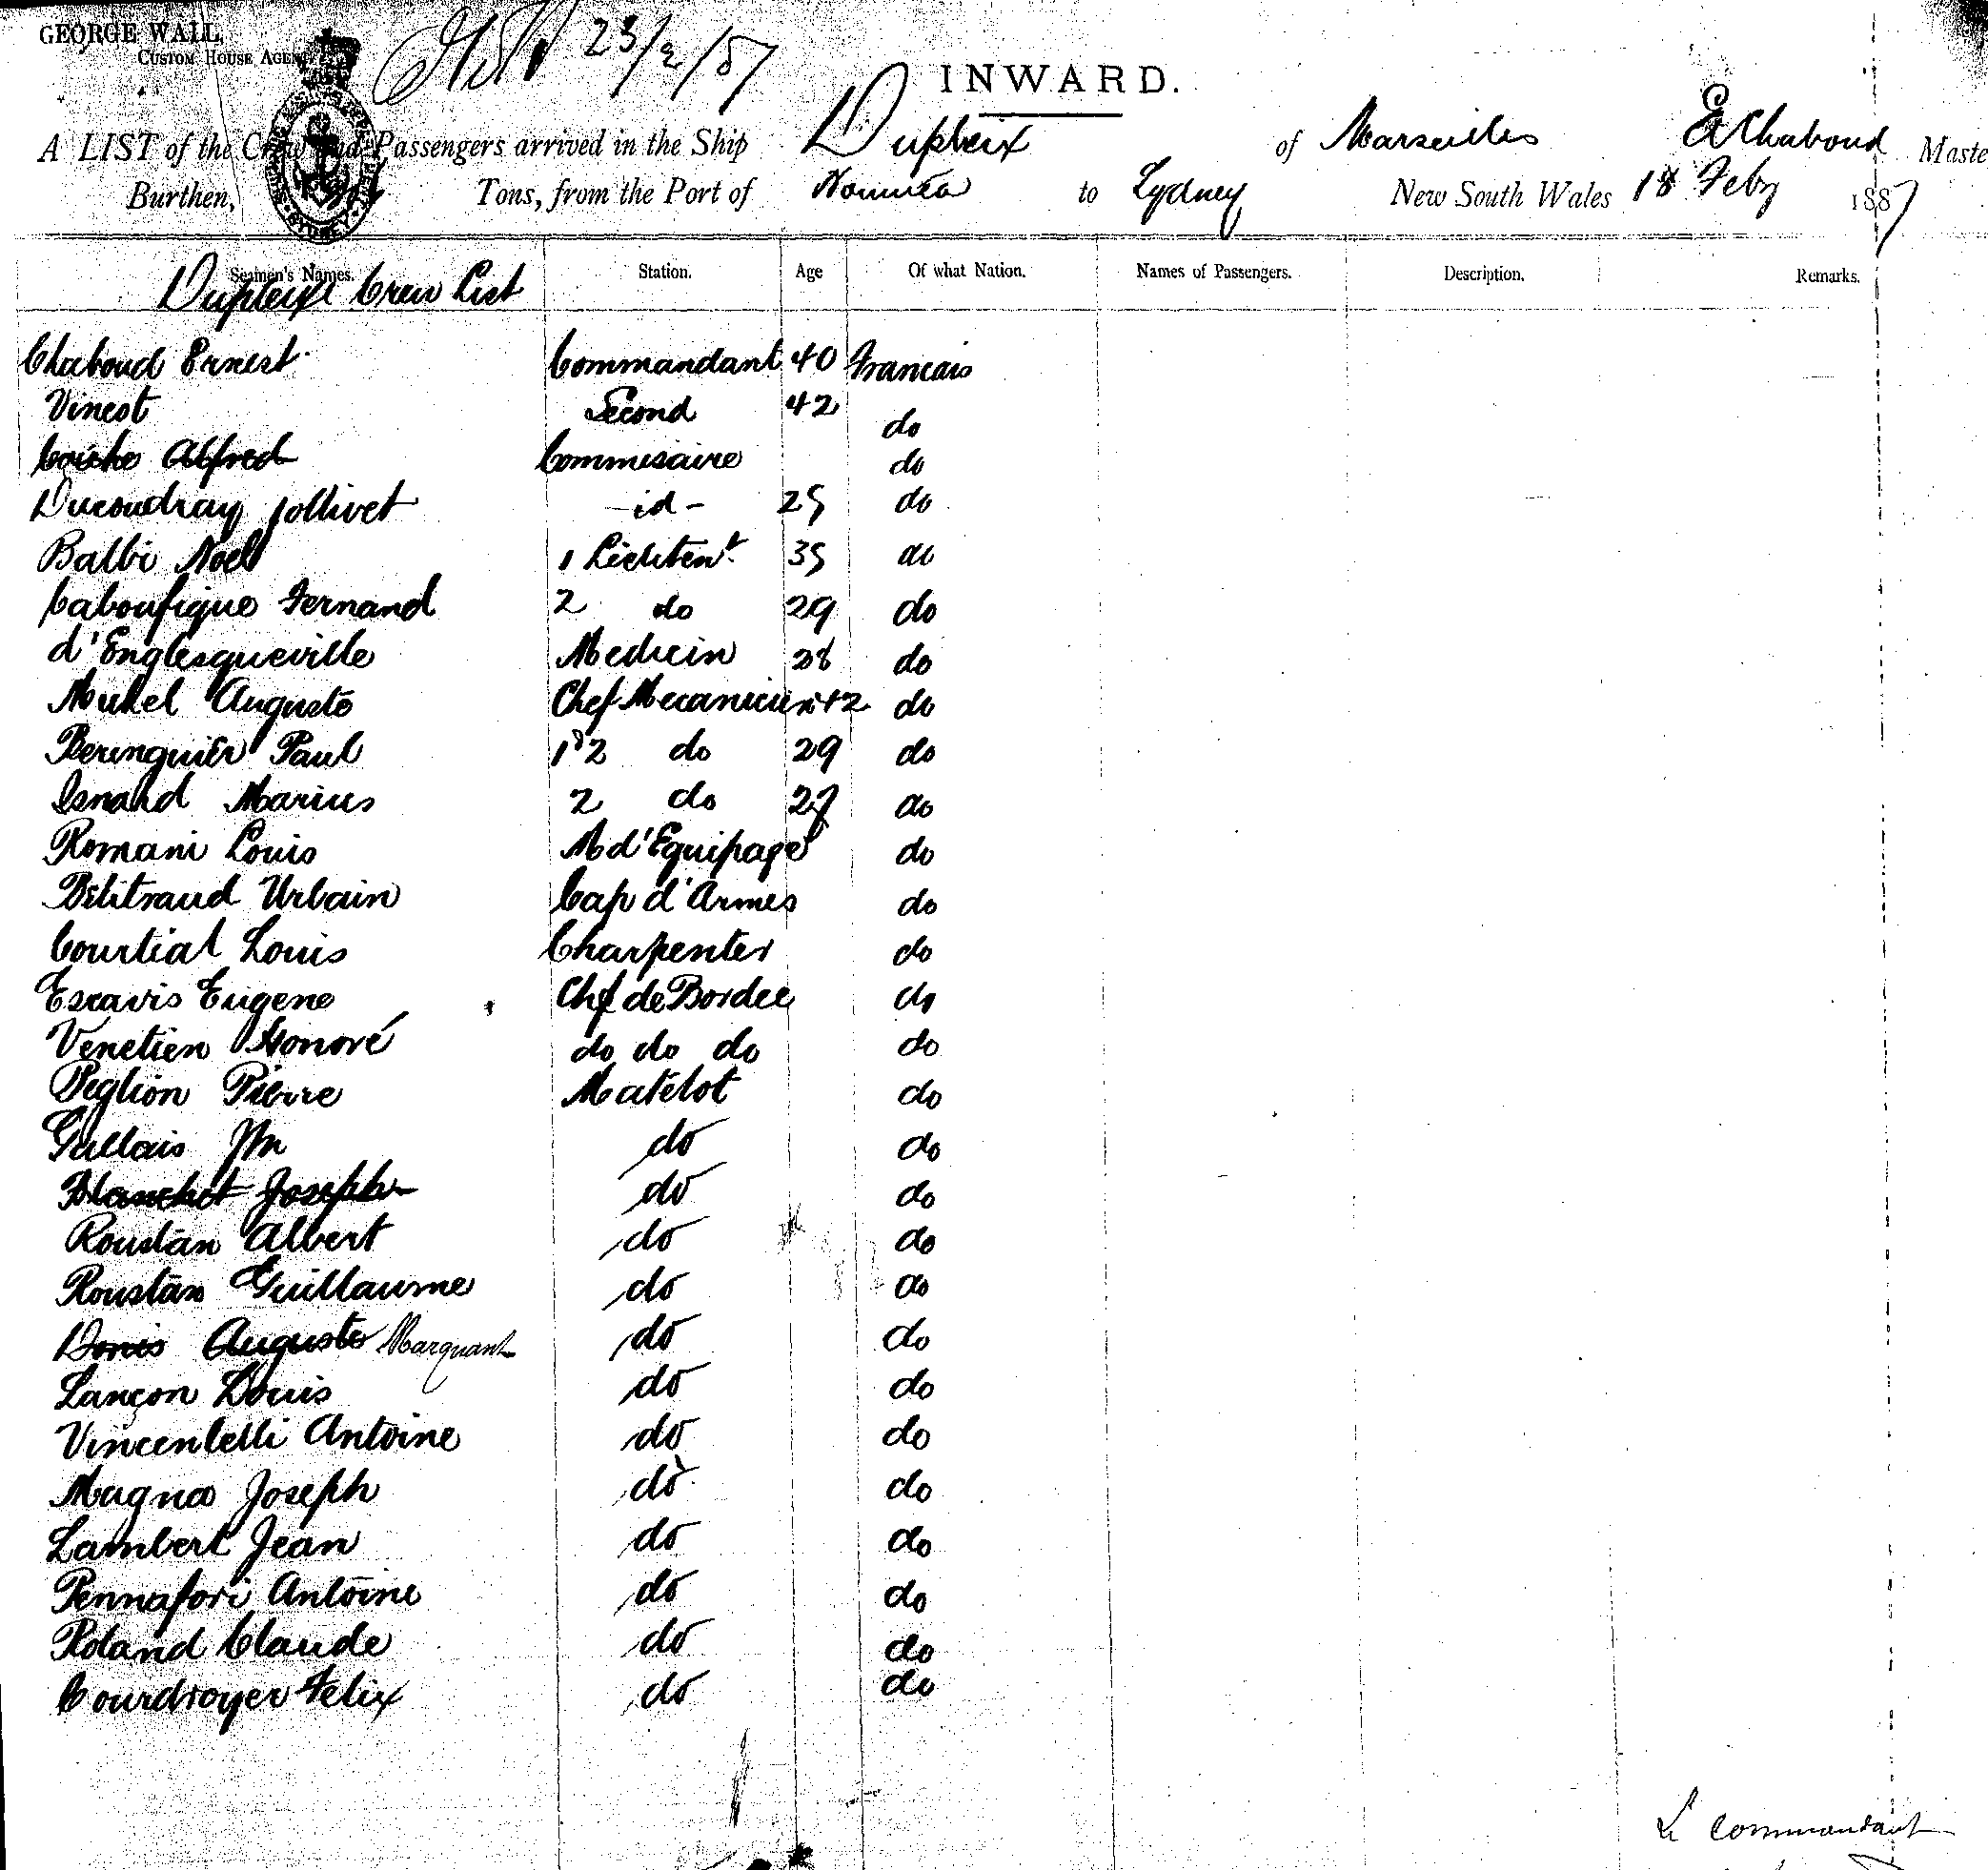 GEORGE WALL,
CUSTOM HOUSE AGENT
23/2/87
INWARD.
A LIST of the Crew and Passengers arrived in the Ship Dupleix of Marseilles E Chaboud Maste
Burthen, Tons, from the Port of Nouméa to Sydney New South Wales 18 Feby 1887
Seamen's Names. Station. Age Of what Nation. Names of Passengers. Description. Remarks.
Dupleix Crew List
Chaboud Ernest Commandant 40 Francais
Vincst Second 42 do
Alfred Commisaire do
Ducoudray Jollivet - id - 25 do
Balbi Noel 1 Lieuten^t 35 do
Caboufigue Fernand 2 do 29 do
d'Englesqueville Medicin 28 do
Auguste Chef Mecanicien 42 do
Berenguier Paul 1^r 2 do 29 do
Isnard Marius 2 do 27 do
Romani Louis M d'Equipage do
Urbain Cap d'Armes do
Courtial Louis Charpenter do
Escavis Eugene Chf de Bordee do
Venetien Honoré do do do do
Peglion Pierre Matelot do
Gallais Jn do do
Blanchet Joseph do do
Roustan Albert do do
Roustan Guillaume do do
Donis Auguste Marquant do do
Lançon Louis do do
Vincentelli Antoine do do
Magna Joseph do do
Lambert Jean do do
Pennafori Antoine do do
Roland Claude do do
Courdroyer Felix do do
Le Commandant